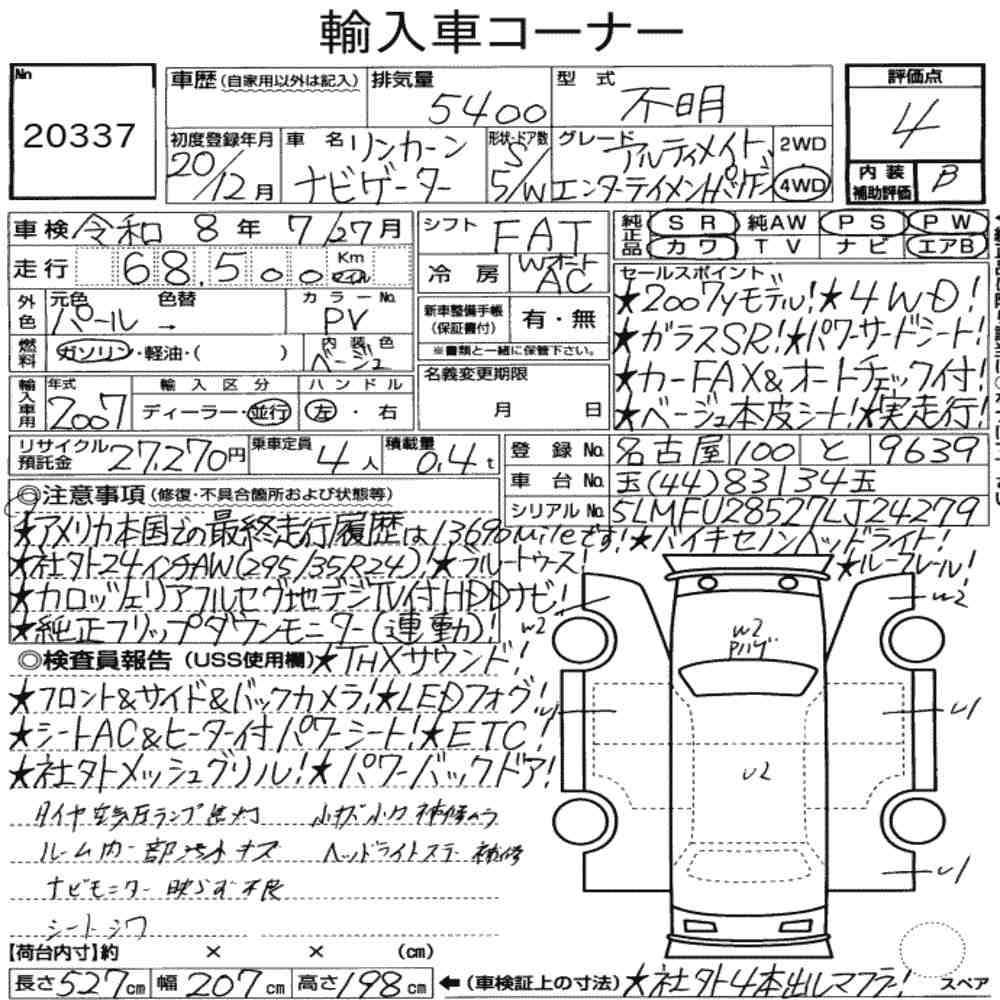 輸入車コーナー
No
20337
車歴 (自家用以外は記入)
排気量 5400
型式 不明
評価点
4
初度登録年月 20/12月
車名 リンカーン ナビゲーター
形状・ドア数 S/5/W
グレード アルティメイト エンターテイメントパッケージ
2WD
4WD
内装補助評価 B
車検 令和 8年 7/27月
シフト FAT
純正品 SR 純AW PS PW
カワ TV ナビ エアB
走行 68,500 Km マイル
冷房 Wオート AC
セールスポイント
★2007yモデル!★4WD!
★ガラスSR!★パワーサードシート!
★カーFAX&オートチェック付!
★ベージュ本皮シート!★実走行!
外色 元色 パール → 色替 カラーNo. PV
新車整備手帳 (保証書付) 有・無
※書類と一緒に保管下さい。
燃料 ガソリン・軽油・( ) 内装色 ベージュ
名義変更期限
月 日
輸入車用 年式 2007 輸入区分 ディーラー・並行 ハンドル 左・右
リサイクル預託金 27,270円 乗車定員 4人 積載量 0.4t
登録No. 名古屋 100 と 9639
車台No. 玉(44)83134玉
シリアルNo. 5LMFU28527LJ24279
◎注意事項 (修復・不具合箇所および状態等)
★アメリカ本国での最終走行履歴は13690mileです!★バイキセノンヘッドライト!
★社外24インチAW(295/35R24)!★ブルートゥース!
★ルーフレール!
★カロッツェリアフルセグ地デジTV付HDDナビ!
★純正フリップダウンモニター(連動)!
◎検査員報告 (USS使用欄)★THXサウンド!
★フロント&サイド&バックカメラ!★LEDフォグ!
★シートAC&ヒーター付パワーシート!★ETC!
★社外メッシュグリル!★パワーバックドア!
タイヤ空気圧ランプ点灯 小キズ小凹補修ムラ
ルーム内一部汚れキズ ヘッドライトステー補修
ナビモニター映らず不良
シートシワ
W2
W2
W2
Pハゲ
U1
U1
U2
U1
【荷台内寸】約 × × (cm)
長さ527cm 幅207cm 高さ198cm ←(車検証上の寸法)★社外4本出しマフラー!
スペア